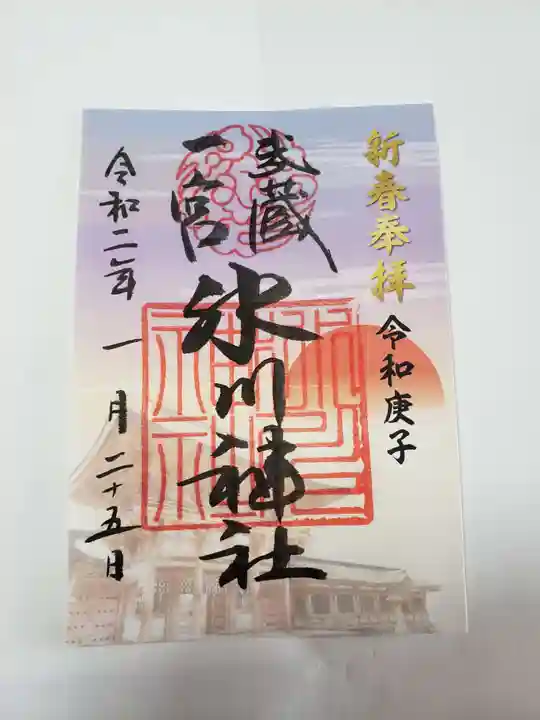 新春奉拝
令和庚子
武蔵
一宮
氷川神社
令和二年一月二十五日